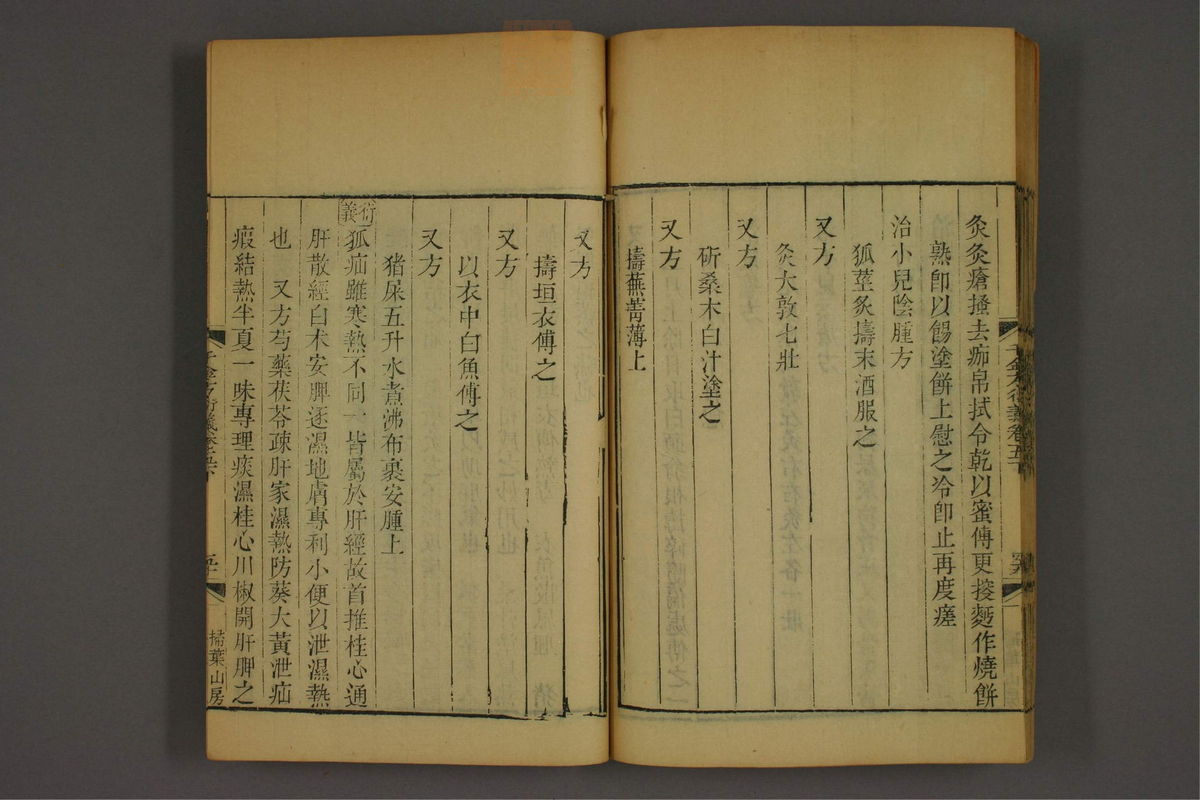 灸灸瘡搔去痂帛拭令乾以蜜傅更㨄麪作燒餅
熟卽以餳塗餅上慰之冷卽止再度瘥
治小兒陰腫方
狐莖炙擣末酒服之
又方
灸大敦七壯
又方
斫桑木白汁塗之
又方
擣蕪菁薄上
千金方衍義卷五下
又方
擣垣衣傅之
又方
以衣中白魚傅之
又方
猪屎五升水煮沸布裹安腫上
衍義
狐疝雖寒熱不同一皆屬於肝經故首推桂心通
肝散經白术安脾逐濕地膚專利小便以泄濕熱
也　又方芍藥茯苓疎肝家濕熱防葵大黃泄疝
瘕結熱半夏一味專理痰濕桂心川椒開肝脾之
千金方衍義卷五下
掃葉山房